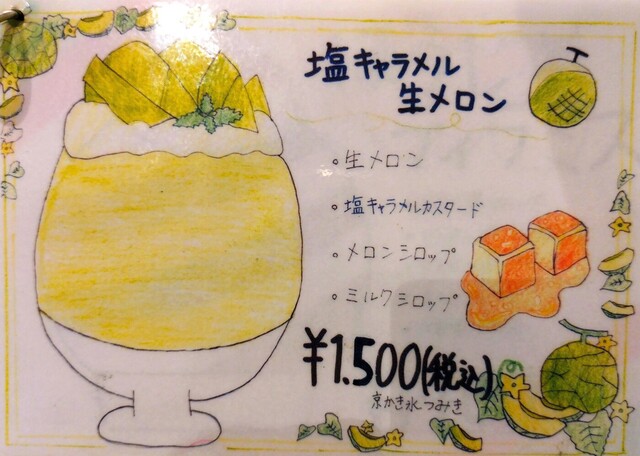 塩キャラメル
生メロン
。生メロン
。塩キャラメルカスタード
。メロンシロップ
。ミルクシロップ
¥1.500(税込)
京かき氷つみき